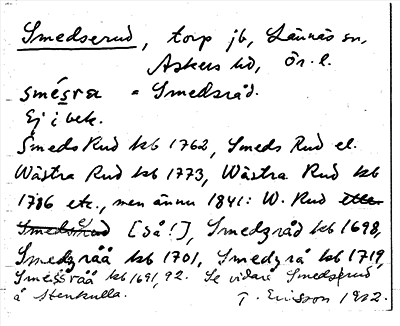 Smedserud, torp jb, Lännäs sn,
Askers hd, Ör. l.
smésra = Smedsråd.
Ej i bet.
Smeds Rud kb 1762, Smeds Rud el.
Wästra Rud kb 1773, Wästra Rud kb
1786 etc., men ännu 1841: W. Rud eller
Smedsrud [så!], Smedzråd kb 1698,
Smedzråå kb 1701, Smedzrå kb 1719,
Smessråå kb 1691, 92. Se vidare Smedserud
å Stenkulla. T. Ericsson 1922.